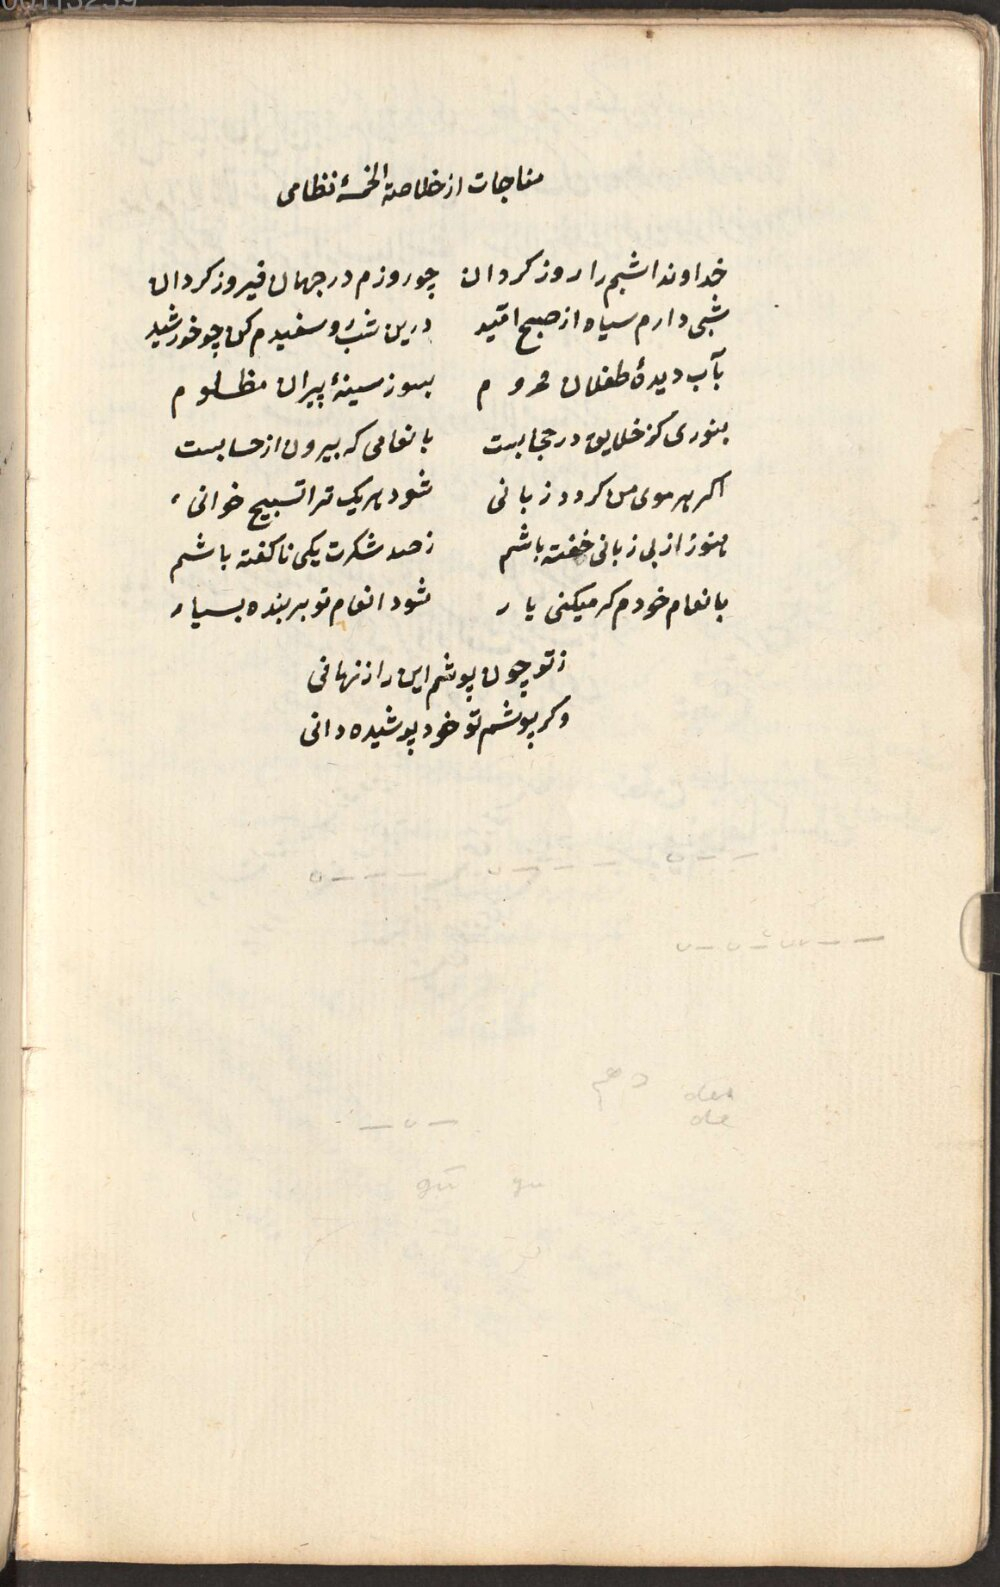 00113239
مناجات از خلاصة الخمسهٔ نظامی
خداوندا شبم را روز کردان چو روزم در جهان فیروز کردان
شبی دارم سیاه از صبح امّید درین شب رو سفیدم کن چو خورشید
بآب دیدهٔ طفلان محروم بسوز سینهٔ پیران مظلوم
بنوری کز خلایق در حجابست بانعامی که بیرون از حسابست
اکر هر موی من کردد زبانی شود هر یک ترا تسبیح خوانی
هنوز از بی زبانی خفته باشم ز صد شکرت یکی ناکفته باشم
بانعام خودم کر میکنی یار شود انعام تو بر بنده بسیار
ز تو چون پوشم این راز نهانی
وکر پوشم تو خود پوشیده دانی